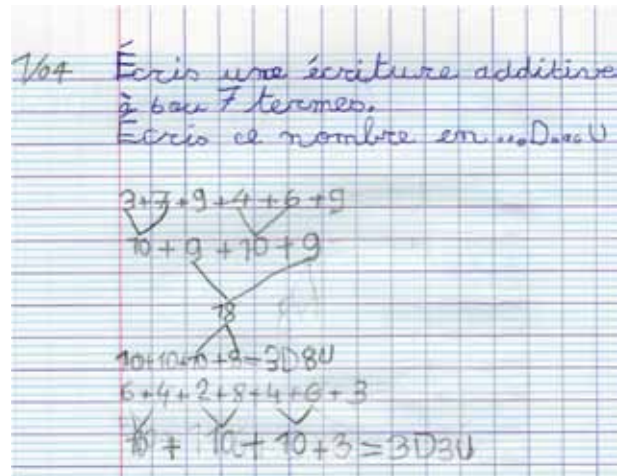 1/04 Écris une écriture additive
à 6 ou 7 termes.
Écris ce nombre en ...D...U
3+7+9+4+6+9
10+9+10+9
18
10+10+10+8=3D8U
6+4+2+8+4+6+3
10+10+10+3=3D3U